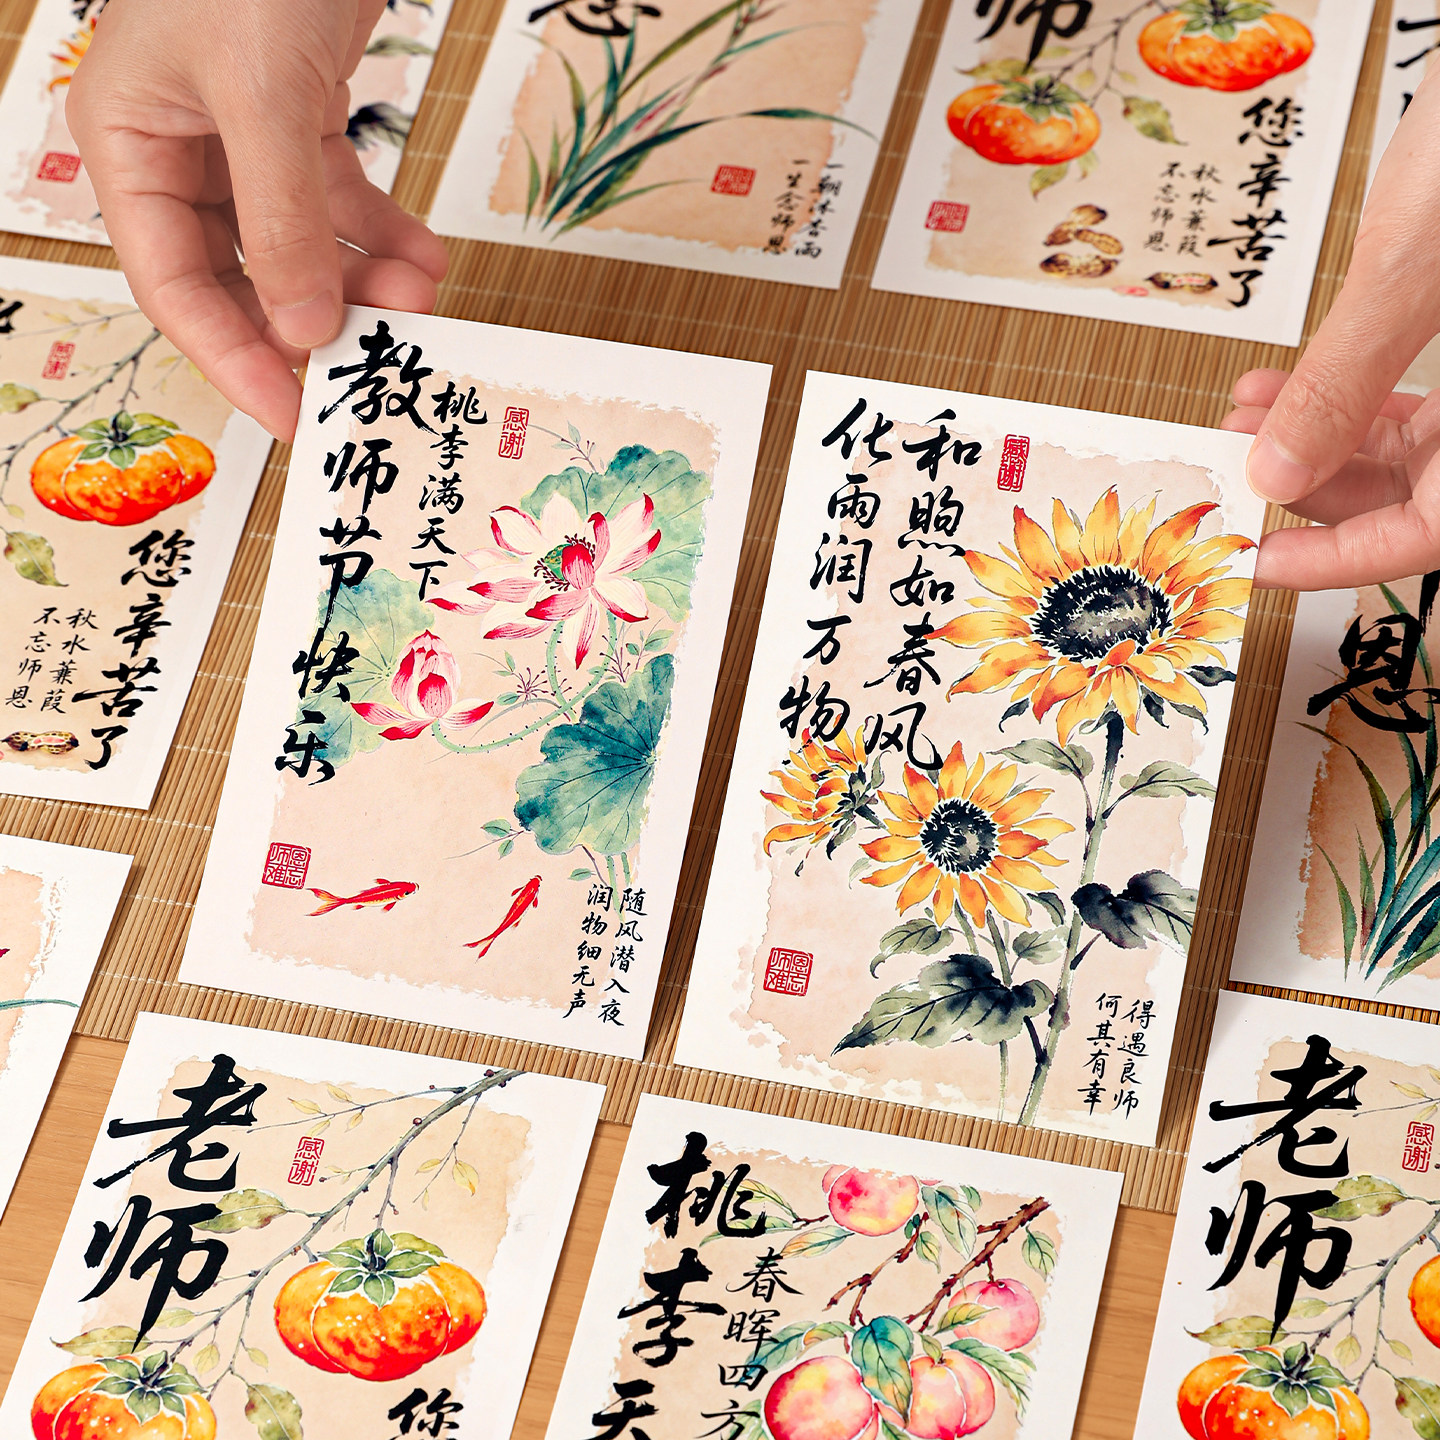 一朝沐杏雨
一生念师恩
师
您辛苦了
秋水蒹葭
不忘师恩
您辛苦了
秋水蒹葭
不忘师恩
感谢
教师节快乐
桃李满天下
感谢
师恩难忘
随风潜入夜
润物细无声
和煦如春风
化雨润万物
感谢
师恩难忘
得遇良师
何其有幸
恩
老师
感谢
您
桃李天
春晖四方
老师
感谢